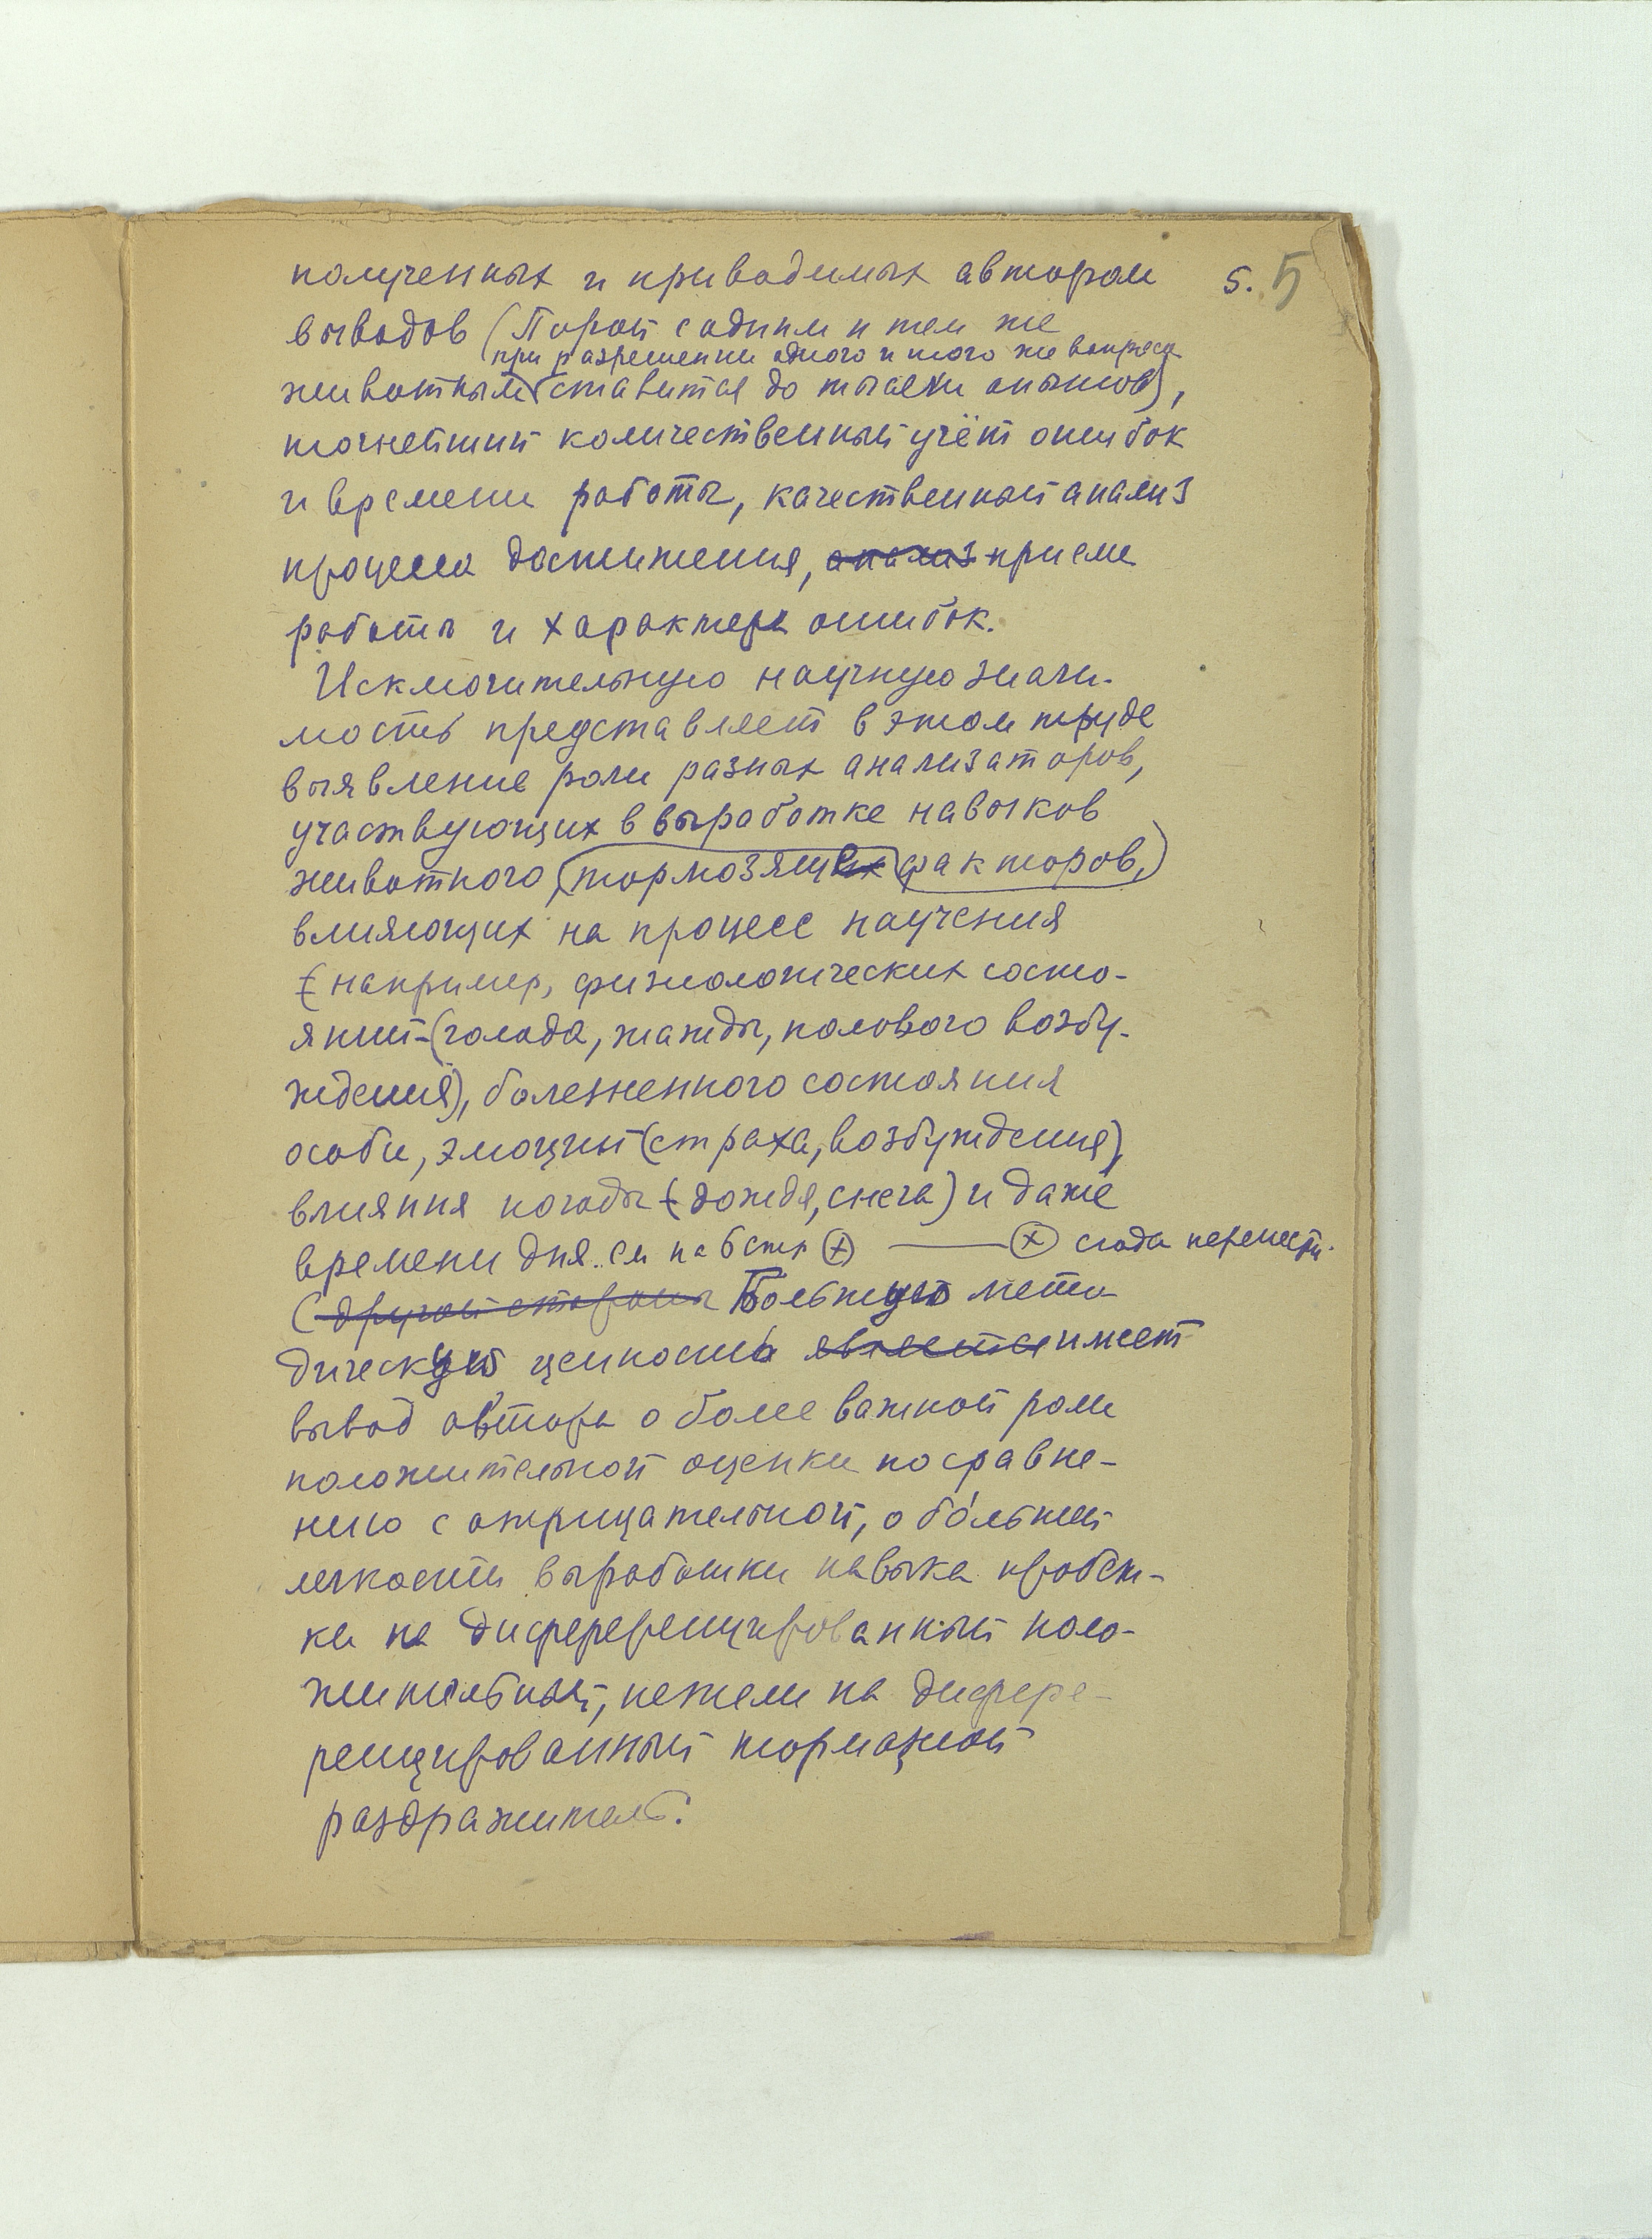 полученных и приводимых автором 5. 5
выводов (Порой с одним и тем же
при разрешении одного и того же вопроса
животным ставится до тысячи опытов),
точнейший количественный учёт ошибок
и времени работы, качественный анализ
процесса достижения, анализ приема
работы и характера ошибок.
Исключительную научную значи-
мость представляет в этом труде
выявление роли разных анализаторов,
участвующих в выработке навыков
животного, тормозящих факторов,
влияющих на процесс научения
(например, физиологических состо-
яний (голода, жажды, полового возбу-
ждения), болезненного состояния
особи, эмоций (страха, возбуждения),
влияния погоды (дождя, снега) и даже
времени дня. См на 6 стр (+) ——— (×) сюда перенести.
С другой стороны Большую мето
дическую ценность является имеет
вывод автора о более важной роли
положительной оценки по сравне-
нию с отрицательной, о бо́льшей
легкости выработки навыка пробеж-
ки на дифференцированный поло-
жительный, нежели на диффе-
ренцированный тормозной
раздражитель.